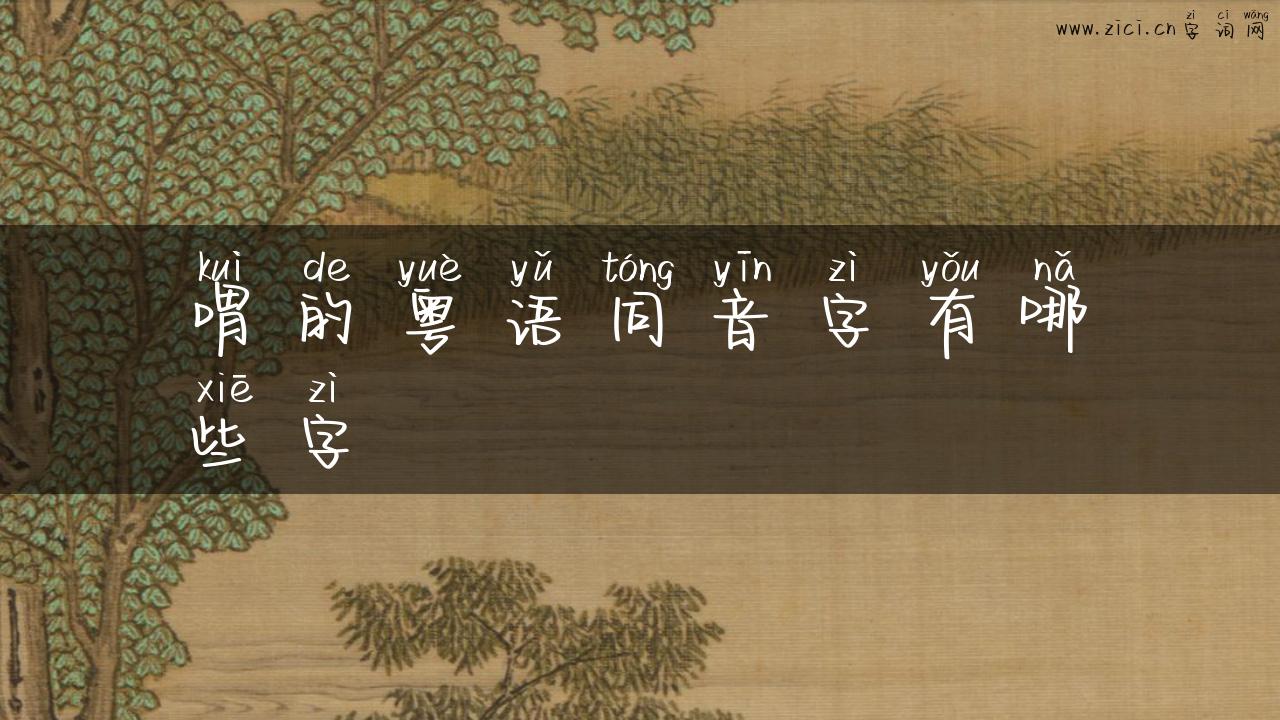 zì cí wǎng
www.zici.cn字词网
kuì de yuè yǔ tóng yīn zì yǒu nǎ
喟的粤语同音字有哪
xiē zì
些字